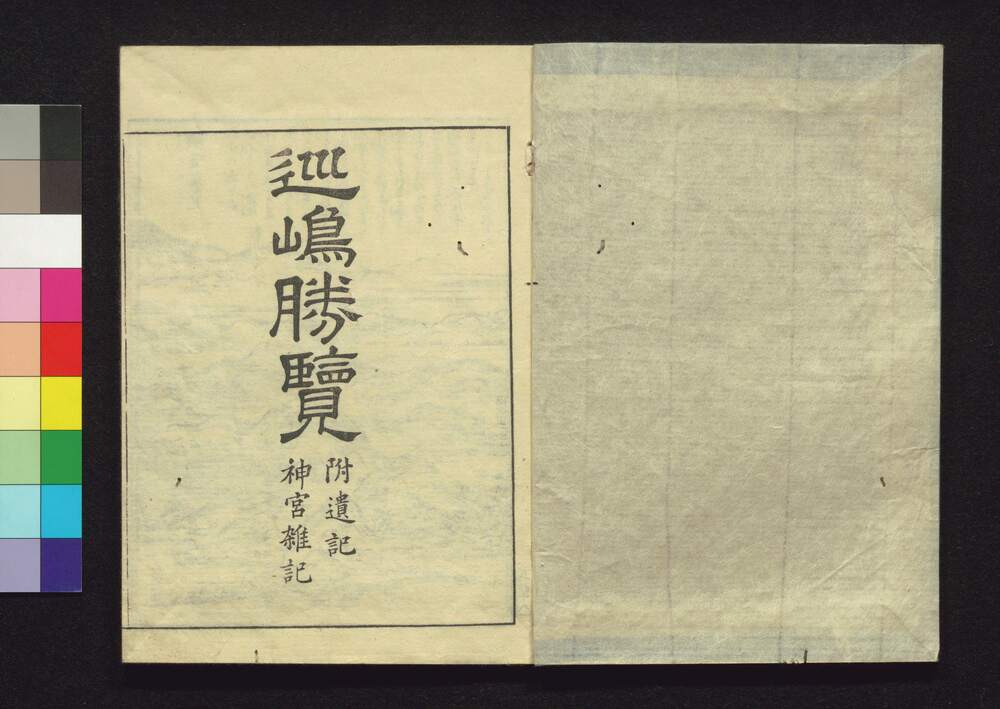 巡嶋勝覽
附遺記
神宮雑記